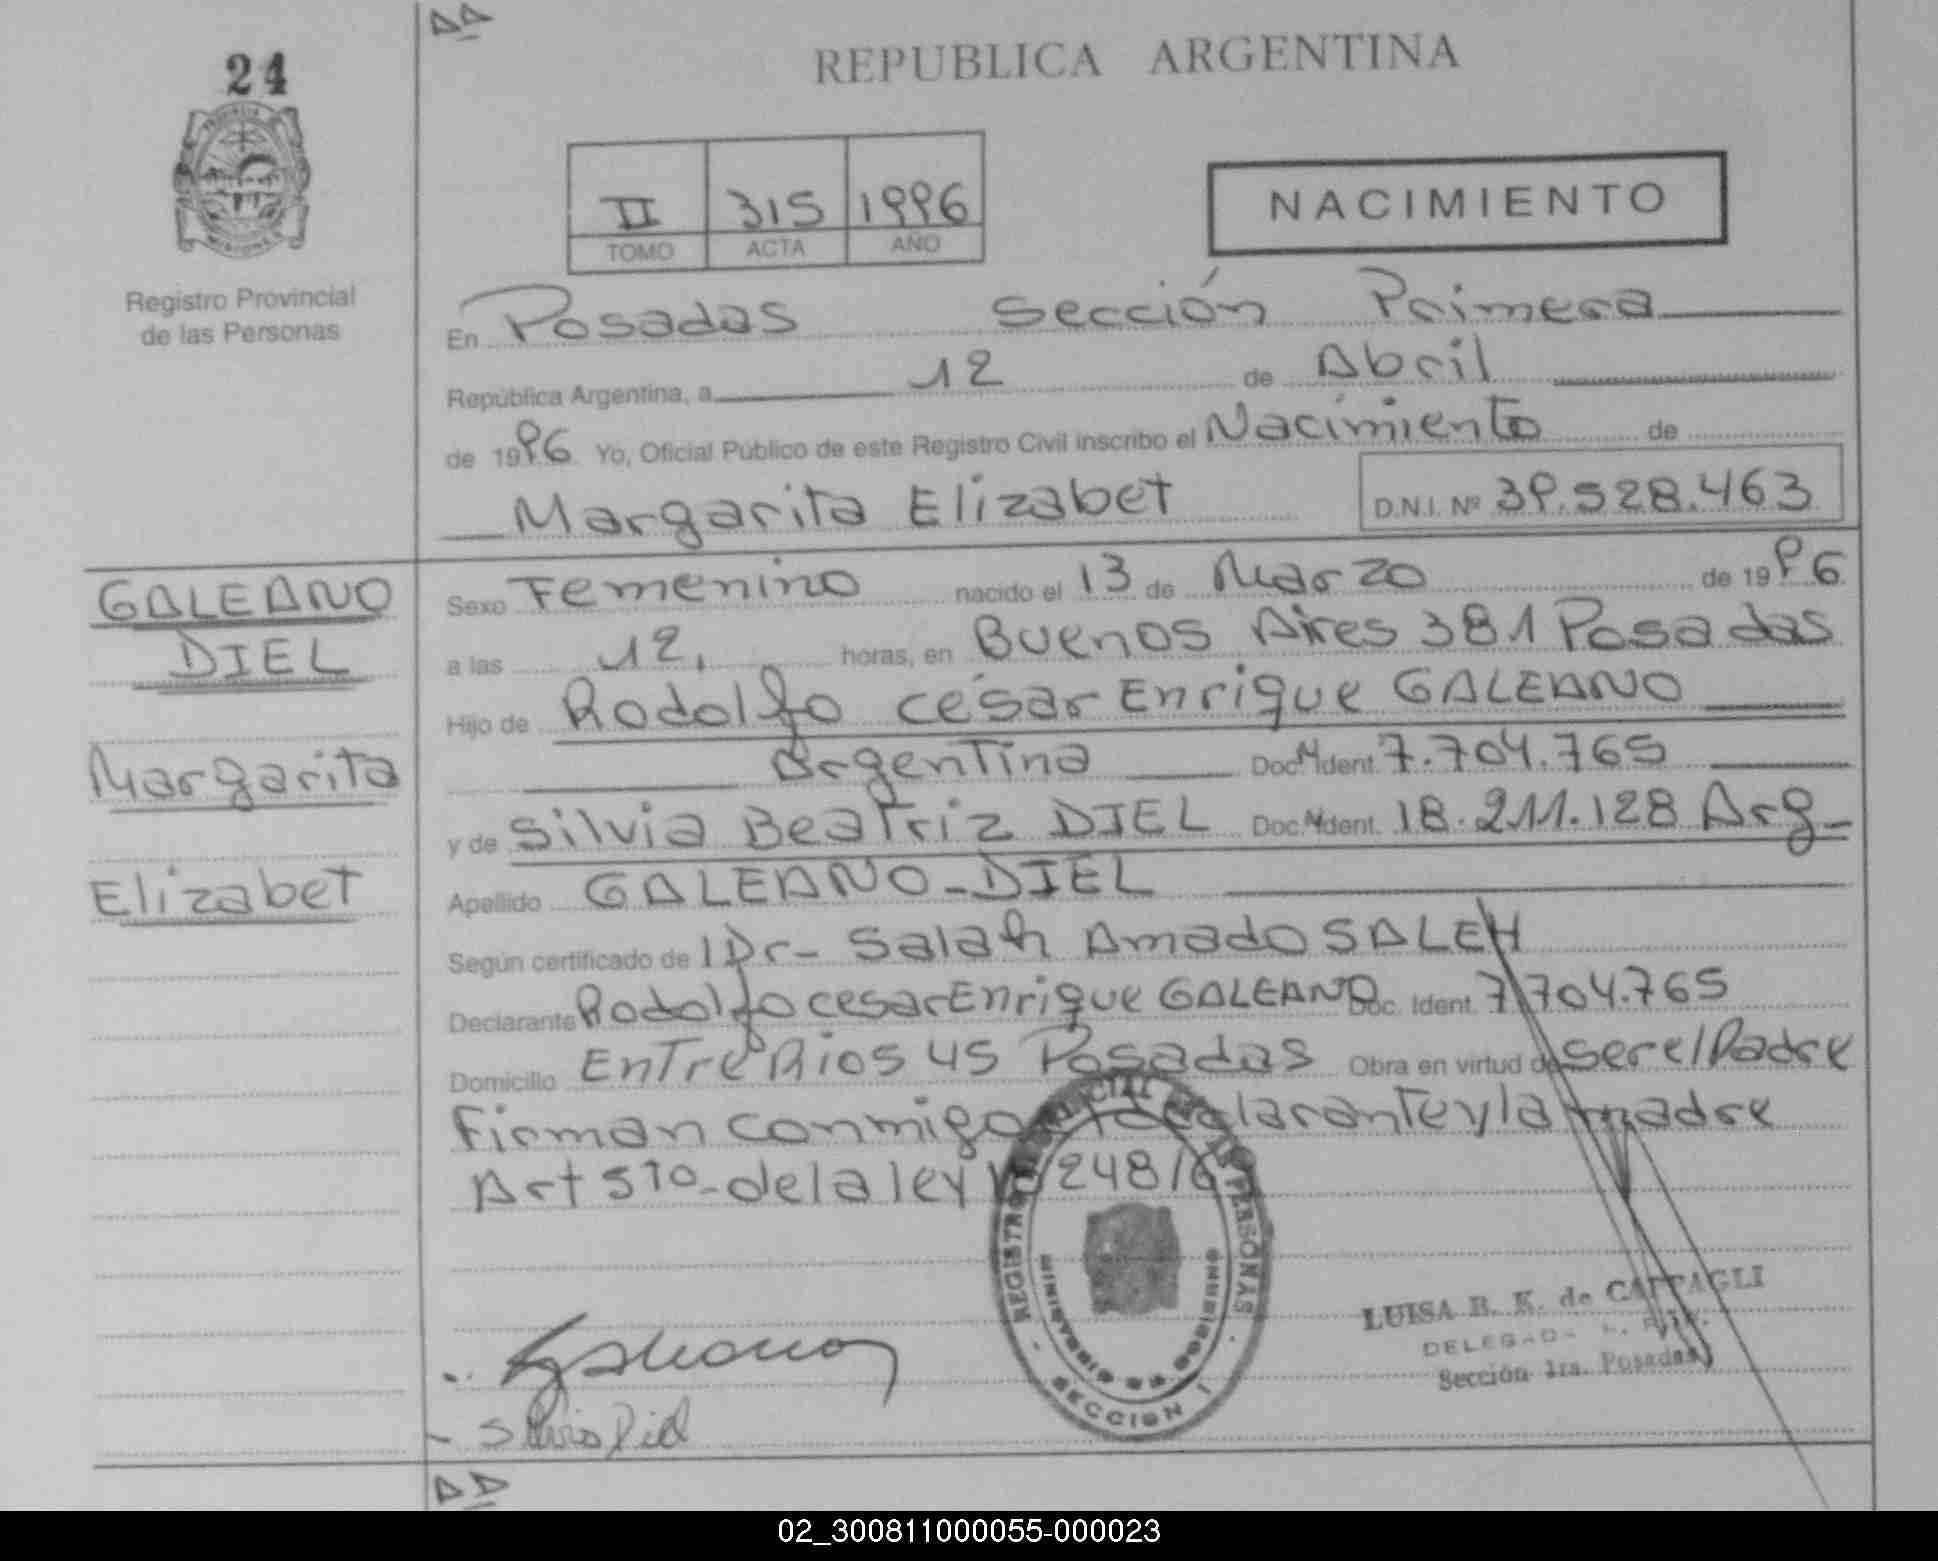 24
REPUBLICA ARGENTINA
II 315 1996
TOMO ACTA AÑO
NACIMIENTO
Registro Provincial
de las Personas
En Posadas Sección Primera
República Argentina, a 12 de Abril
de 1996 Yo, Oficial Público de este Registro Civil inscribo el Nacimiento de
Margarita Elizabet D.N.I. Nº 39.528.463
GALEANO
DIEL
Margarita
Elizabet
Sexo Femenino nacido el 13 de Marzo de 1996
a las 12, horas, en Buenos Aires 381 Posadas
Hijo de Rodolfo césar Enrique GALEANO
Argentina Doc. Ident. 7.704.765
y de Silvia Beatriz DIEL Doc. Ident. 18.211.128 Arg-
Apellido GALEANO-DIEL
Según certificado de l Dr- Salah Amado SALEH
Declarante Rodolfo cesar Enrique GALEANO Doc. Ident. 7.704.765
Domicilio Entre Rios 45 Posadas Obra en virtud de ser el Padre
Firman conmigo declarante y la madre
Art 5to- de la ley 248/6
REGISTRO PERSONAS
MINISTERIO DE GOBIERNO
SECCION I
LUISA B. K. de CATTAGLI
DELEGADA
Sección 1ra. Posadas
Silvia Diel
02_300811000055-000023